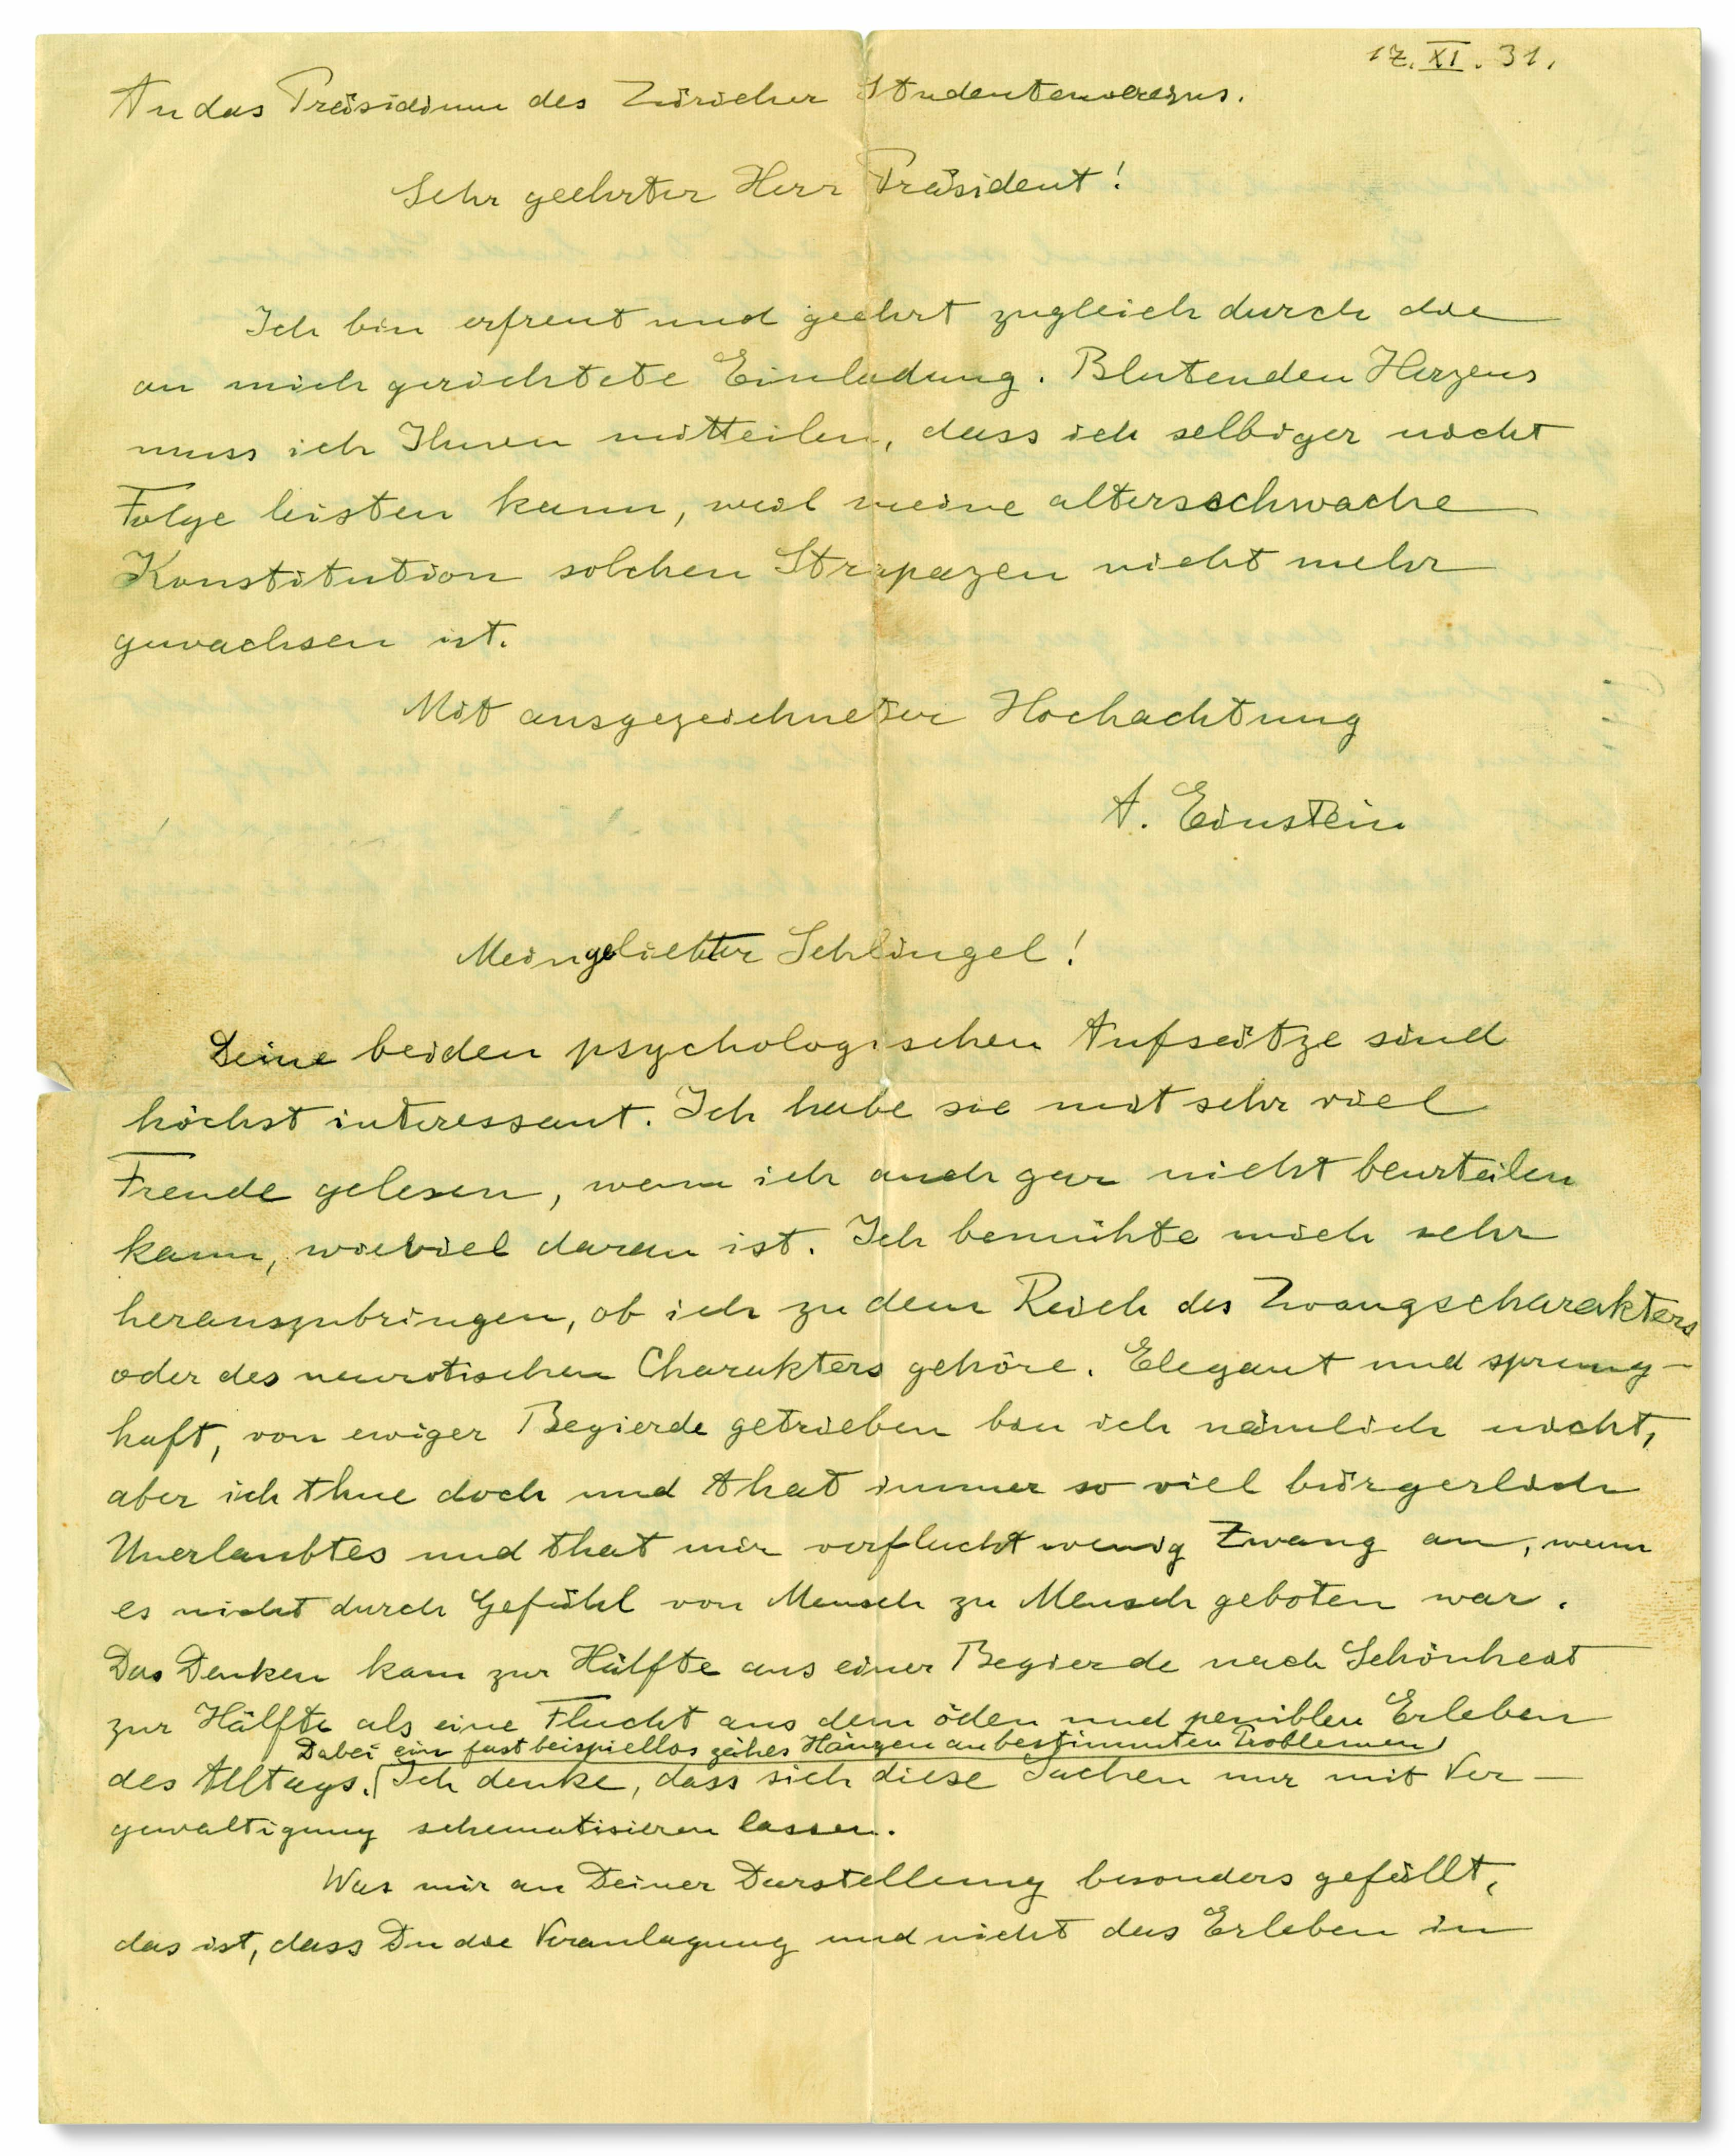 17. XI. 31.
An das Präsidium des Züricher Studentenvereins.
Sehr geehrter Herr Präsident!
Ich bin erfreut und geehrt zugleich durch die
an mich gerichtete Einladung. Blutenden Herzens
muss ich Ihnen mitteilen, dass ich selbiger nicht
Folge leisten kann, weil meine altersschwache
Konstitution solchen Strapazen nicht mehr
gewachsen ist.
Mit ausgezeichneter Hochachtung
A. Einstein
Mein geliebter Schlingel!
Deine beiden psychologischen Aufsätze sind
höchst interessant. Ich habe sie mit sehr viel
Freude gelesen, wenn ich auch gar nicht beurteilen
kann, wieviel daran ist. Ich bemühte mich sehr
herauszubringen, ob ich zu dem Reich des Zwangscharakters
oder des neurotischen Charakters gehöre. Elegant und sprung-
haft, von ewiger Begierde getrieben bin ich nämlich nicht,
aber ich thue doch und that immer so viel bürgerlich
Unerlaubtes und that mir verflucht wenig Zwang an, wenn
es nicht durch Gefühl von Mensch zu Mensch geboten war.
Das Denken kam zur Hälfte aus einer Begierde nach Schönheit
zur Hälfte als eine Flucht aus dem öden und peniblen Erleben
Dabei ein fast beispiellos zähes Hängen an bestimmten Problemen
des Alltags. Ich denke, dass sich diese Sachen nur mit Ver-
gewaltigung schematisieren lassen.
Was mir an Deiner Darstellung besonders gefällt,
das ist, dass Du die Veranlagung und nicht das Erleben in